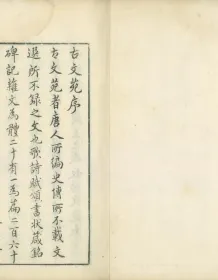 古文苑序
古文苑者唐人所編史傳所不載文
選所不錄之文也歌詩賦頌書狀箴銘
碑記雜文為體二十有一為篇二百六十